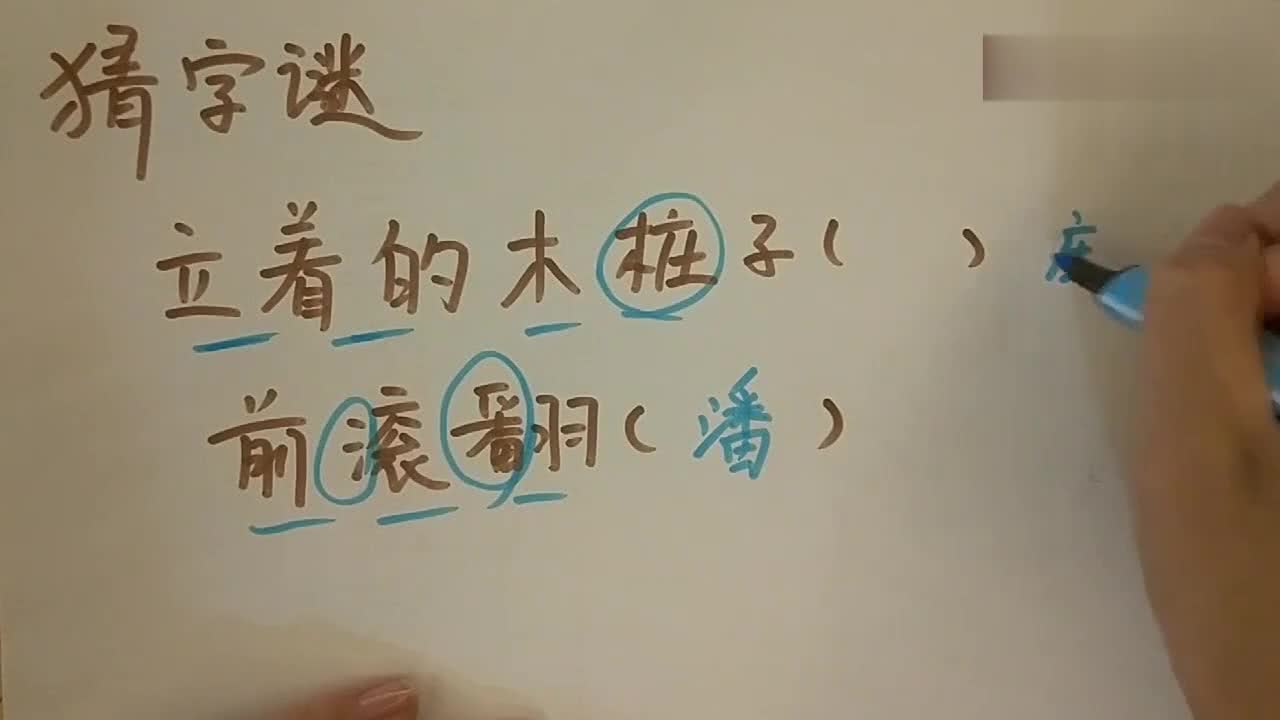 猜字谜
立着的木桩子( ) 庄
前滚翻(潘)